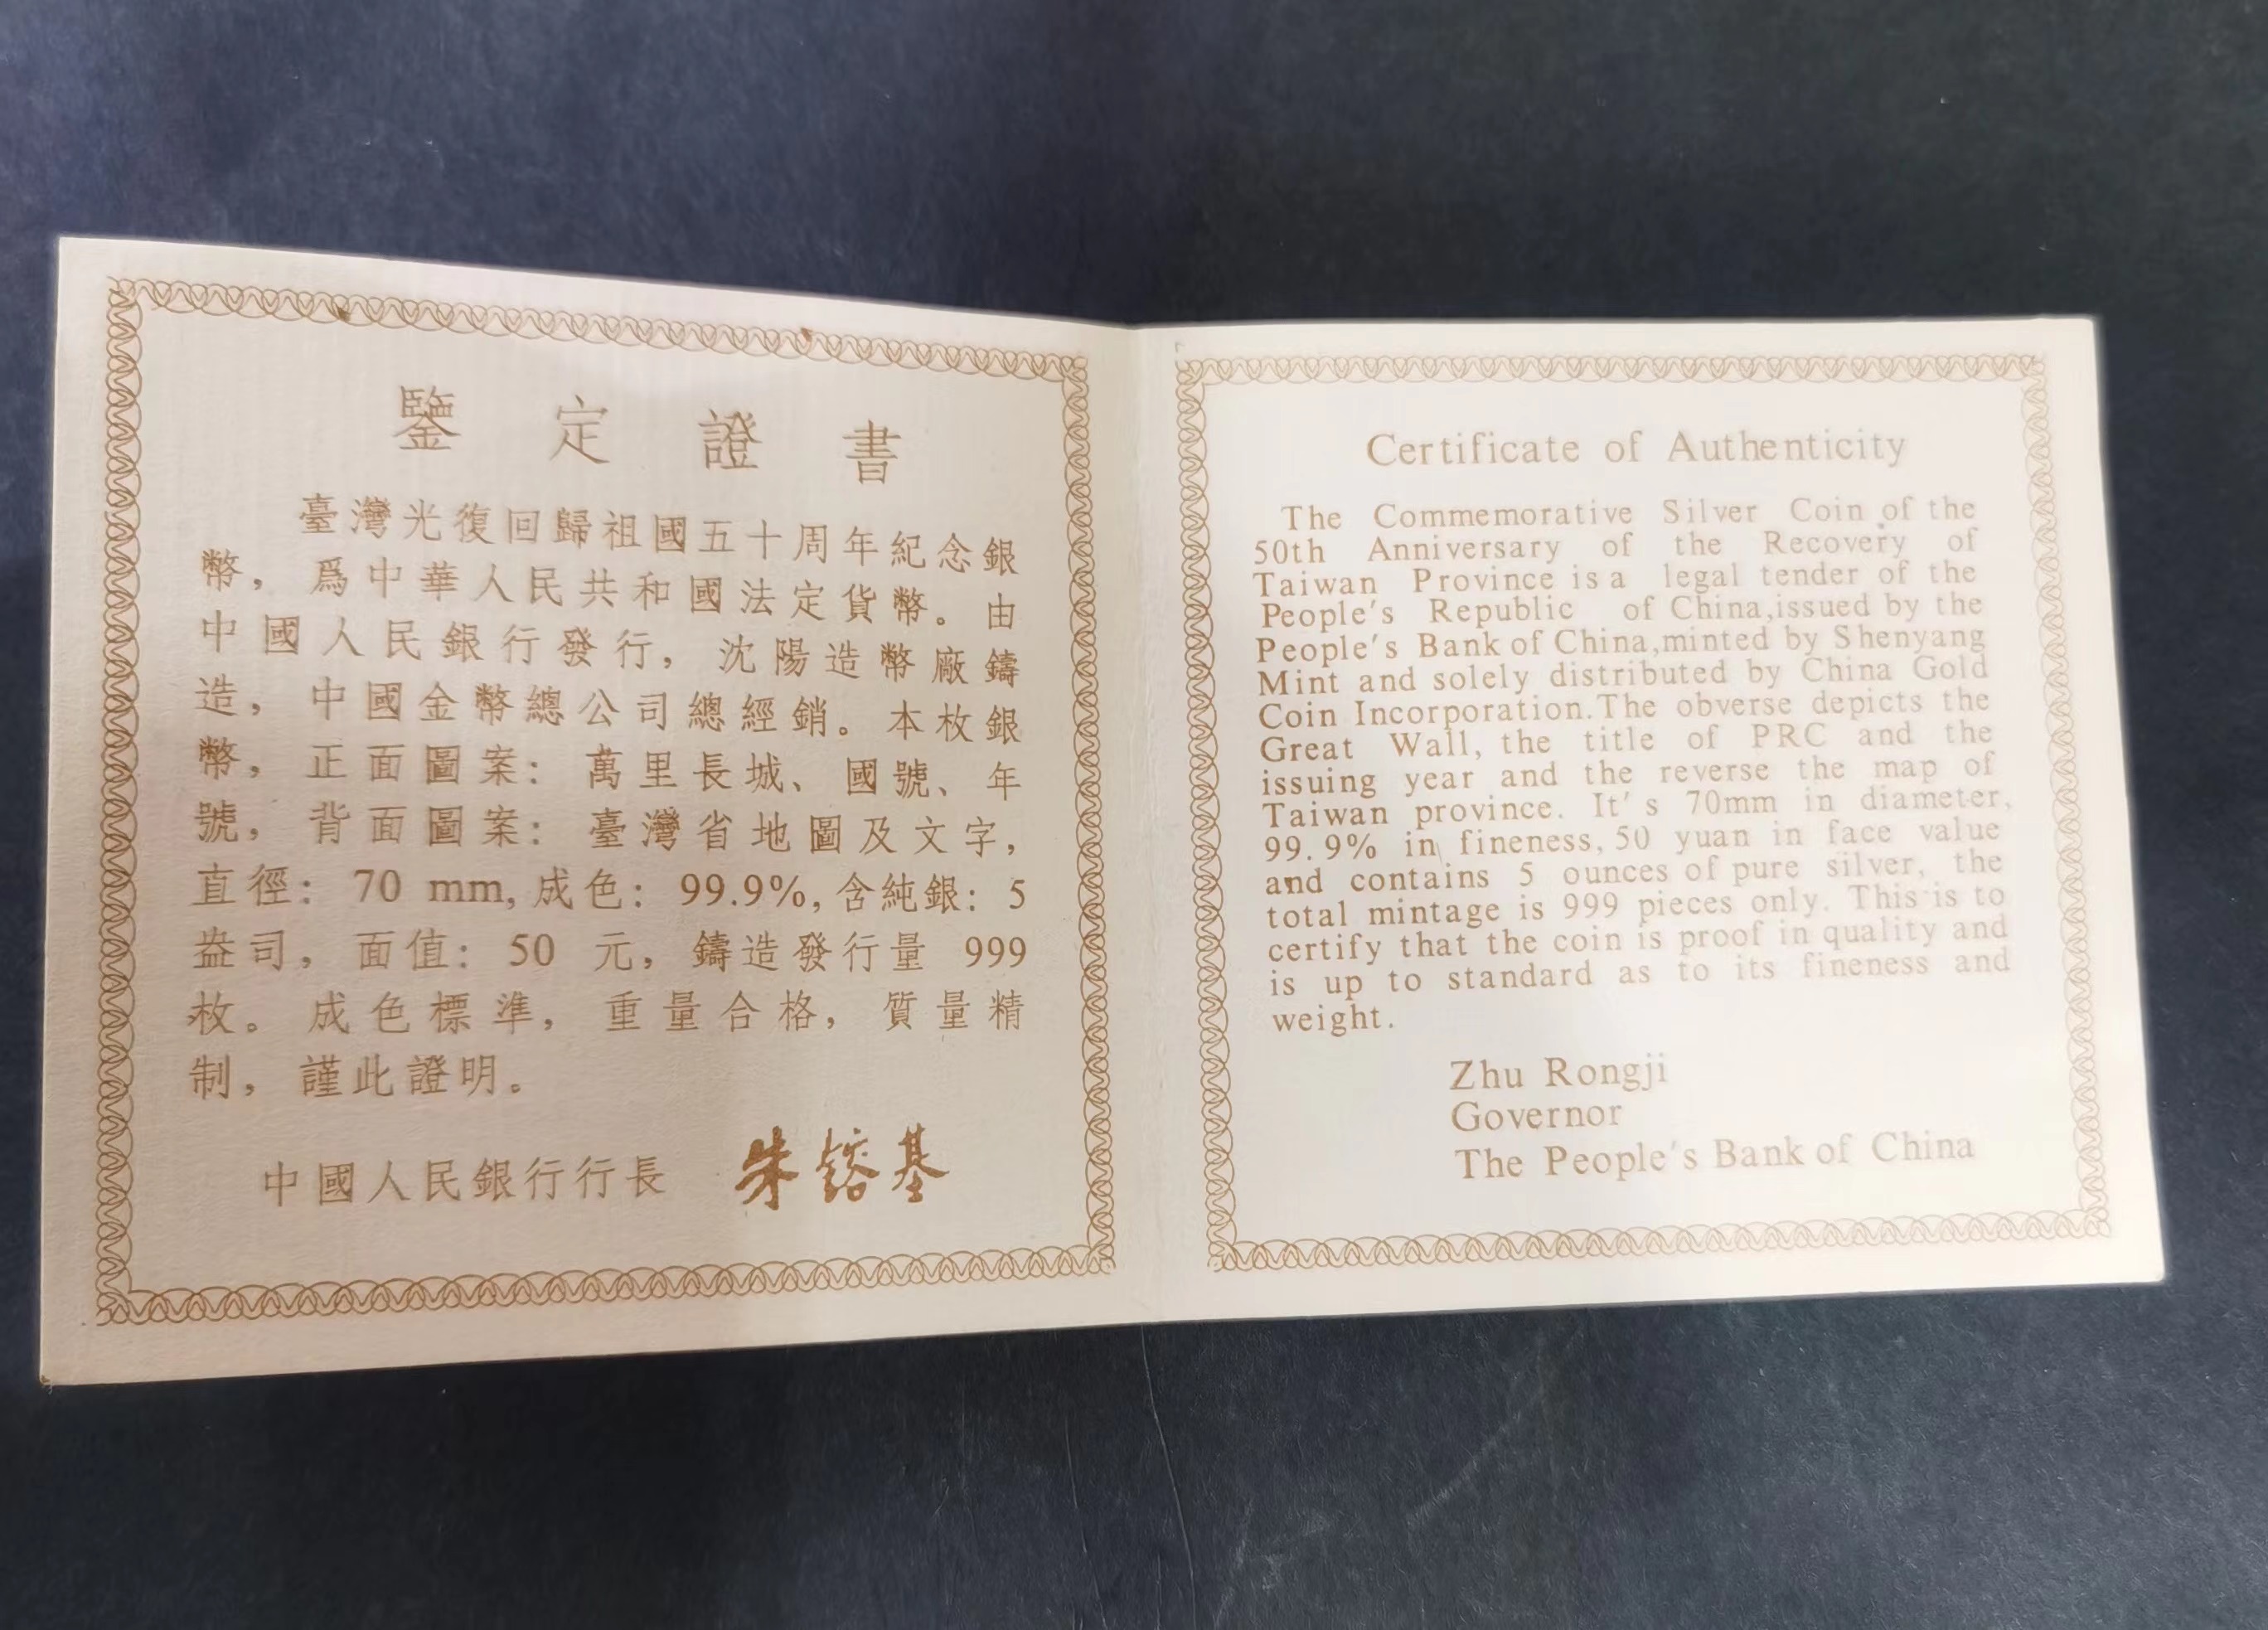 鑒定證書
臺灣光復回歸祖國五十周年紀念銀
幣，爲中華人民共和國法定貨幣。由
中國人民銀行發行，沈陽造幣廠鑄
造，中國金幣總公司總經銷。本枚銀
幣，正面圖案：萬里長城、國號、年
號，背面圖案：臺灣省地圖及文字，
直徑：70 mm,成色：99.9%,含純銀：5
盎司，面值：50 元，鑄造發行量 999
枚。成色標準，重量合格，質量精
制，謹此證明。
中國人民銀行行長 朱鎔基
Certificate of Authenticity
The Commemorative Silver Coin of the
50th Anniversary of the Recovery of
Taiwan Province is a legal tender of the
People's Republic of China,issued by the
People's Bank of China,minted by Shenyang
Mint and solely distributed by China Gold
Coin Incorporation.The obverse depicts the
Great Wall, the title of PRC and the
issuing year and the reverse the map of
Taiwan province. It's 70mm in diameter,
99.9% in fineness, 50 yuan in face value
and contains 5 ounces of pure silver, the
total mintage is 999 pieces only. This is to
certify that the coin is proof in quality and
is up to standard as to its fineness and
weight.
Zhu Rongji
Governor
The People's Bank of China